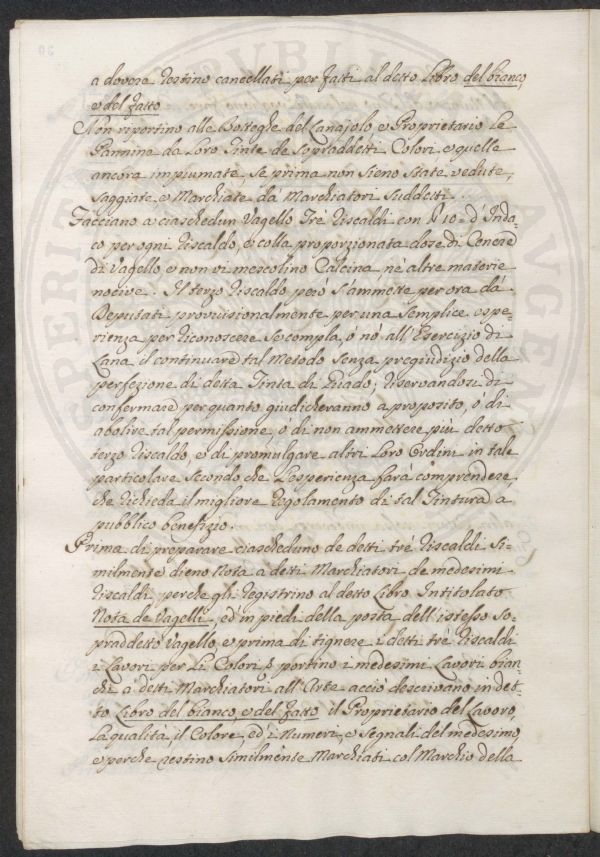 a dovere restino cancellati per fatti al detto Libro del bianco,
e del fatto
Non riportino alle Botteghe del Lanajolo e Proprietario Le
Pannina da Loro Tinte de Sopraddetti Colori e quelle
ancora impiumate, se prima non sieno state vedute,
saggiate e Marchiate da Marchiatori Suddetti.
Facciano a ciaschedun Vagello Tre Riscaldi con 10 d'Inda=
co per ogni Riscaldo, e colla proporzionata dose di Cenere
di Vagello e non vi mescolino Calcina ne altre materie
nocive. Il terzo Riscaldo però s'ammette per ora da
Deputati provvisionalmente per una Semplice espe=
rienza per riconoscere se compla, ò nò all'Esercizio di
Lana il continuare tal Metodo Senza pregiudizio della
perfezione di detta Tinta di Guado; riservandosi di
confermare per quanto giudicheranno a proposito, ò di
abolire tal permissione, ò di non ammettere più detto
terzo Riscaldo, e di promulgare altri Loro Ordini in tale
particolare secondo che L'esperienza farà comprendere
che richieda il migliore regolamento di tal Tintura a
pubblico benefizio.
Prima di preparare ciascheduno de detti tre Riscaldi Si=
milmente dieno Nota a detti Marchiatori de medesimi
Riscaldi perche gli registrino al detto Libro Intitolato
Nota de Vagelli, ed in piedi della posta dell'istesso So=
praddetto Vagello e prima di tignere i detti tre Riscaldi
i Lavori per Li Colori portino i medesimi Lavori bian=
chi a detti Marchiatori all'Arte acciò descrivano in det=
to Libro del bianco, e del fatto il Proprietario del Lavoro,
La qualità, il Colore, ed i Numeri, e Segnali del medesimo
e perche restino Similmente Marchiati col Marchio della